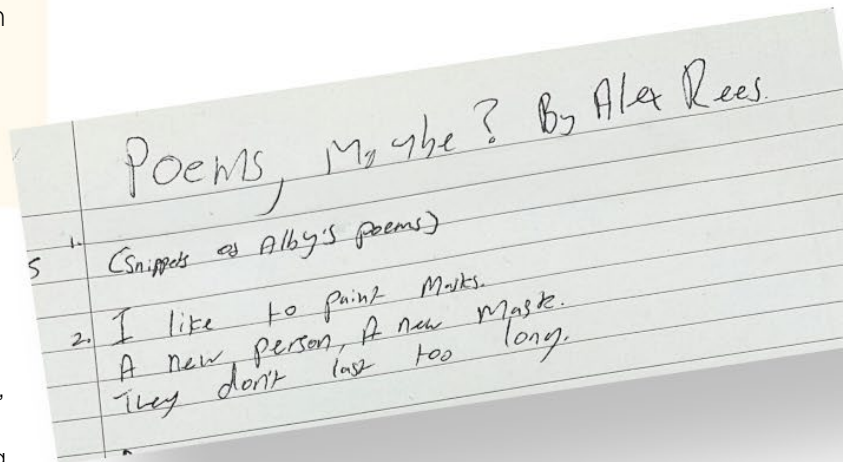 Poems, Maybe? By Alex Rees.
1. (Snippets of Alby's poems)
2. I like to paint Masks.
A new person, A new Mask.
They don't last too long.